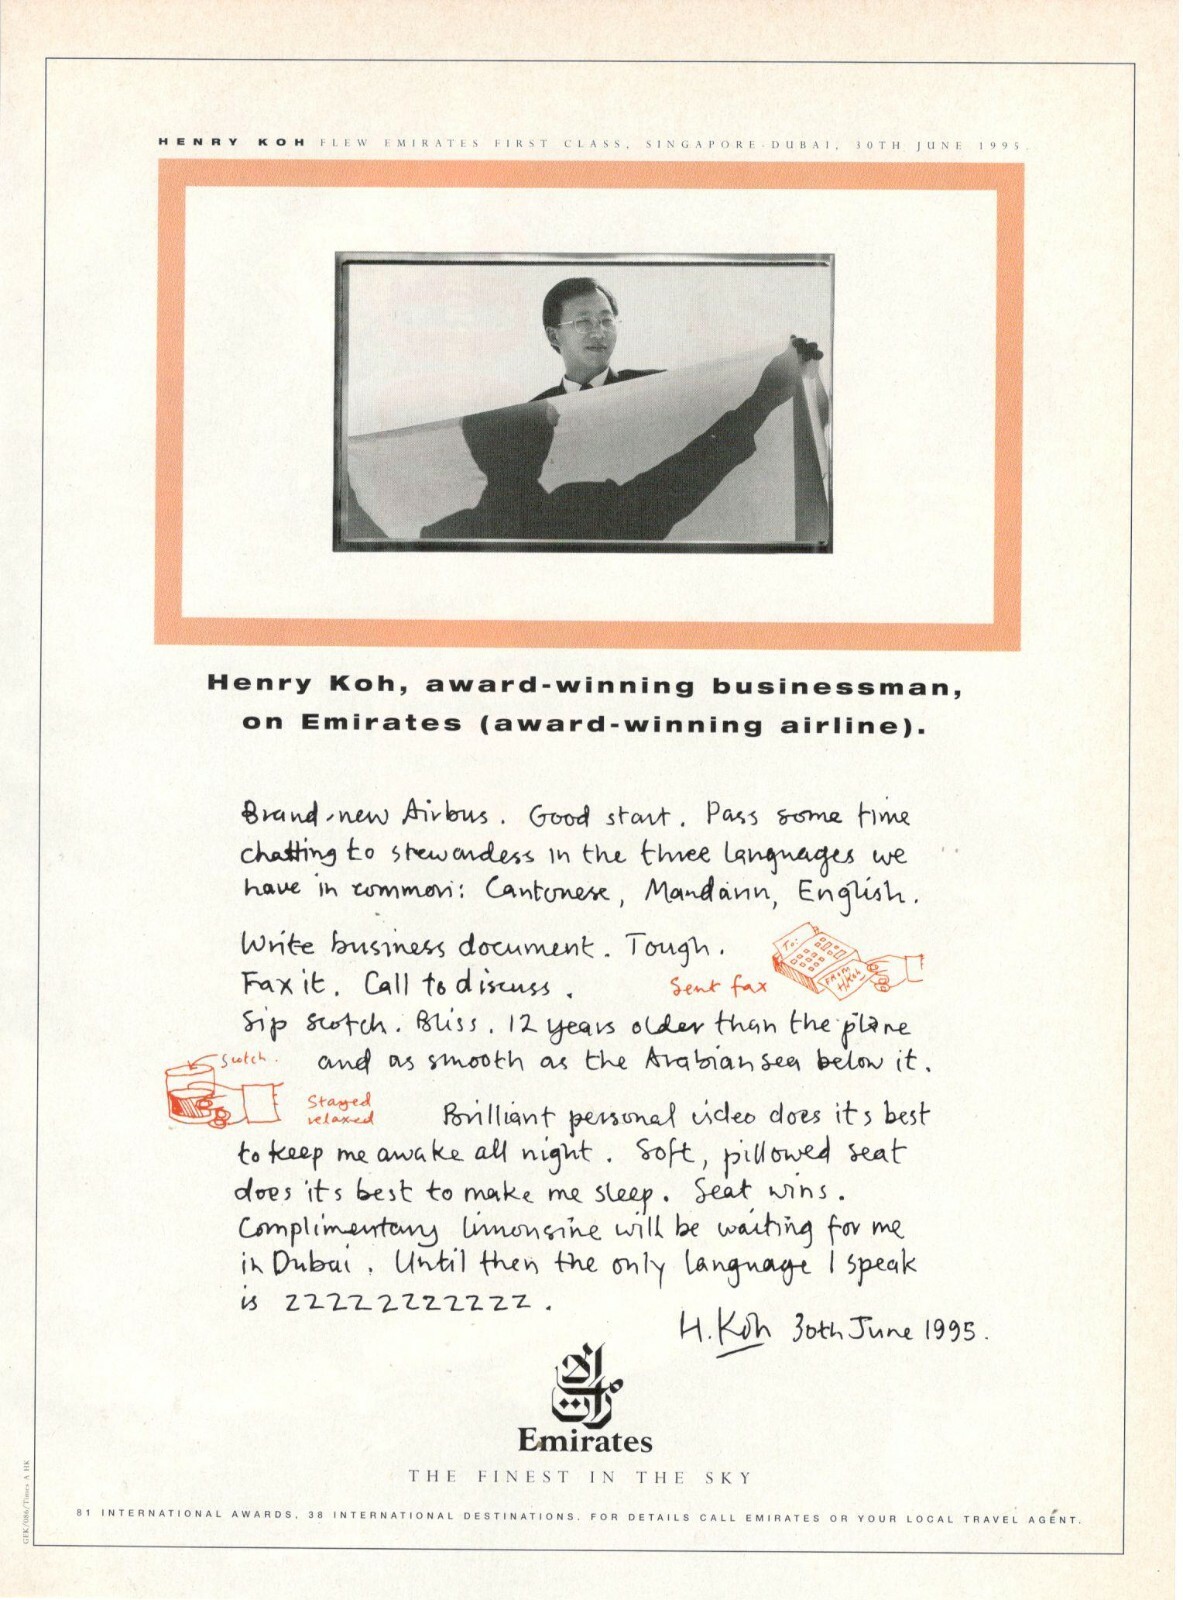 HENRY KOH FLEW EMIRATES FIRST CLASS, SINGAPORE-DUBAI, 30TH JUNE 1995.
Henry Koh, award-winning businessman,
on Emirates (award-winning airline).
Brand-new Airbus. Good start. Pass some time
chatting to stewardess in the three languages we
have in common: Cantonese, Mandarin, English.
Write business document. Tough.
To:
Fax it. Call to discuss.
Sent fax
FROM
H.Koh
Sip scotch. Bliss. 12 years older than the plane
Scotch.
and as smooth as the Arabian sea below it.
Stayed
relaxed
Brilliant personal video does it's best
to keep me awake all night. Soft, pillowed seat
does it's best to make me sleep. Seat wins.
Complimentary limousine will be waiting for me
in Dubai. Until then the only language I speak
is zzzzzzzzzzzz.
H.Koh 30th June 1995.
الإمارات
Emirates
THE FINEST IN THE SKY
81 INTERNATIONAL AWARDS. 38 INTERNATIONAL DESTINATIONS. FOR DETAILS CALL EMIRATES OR YOUR LOCAL TRAVEL AGENT.